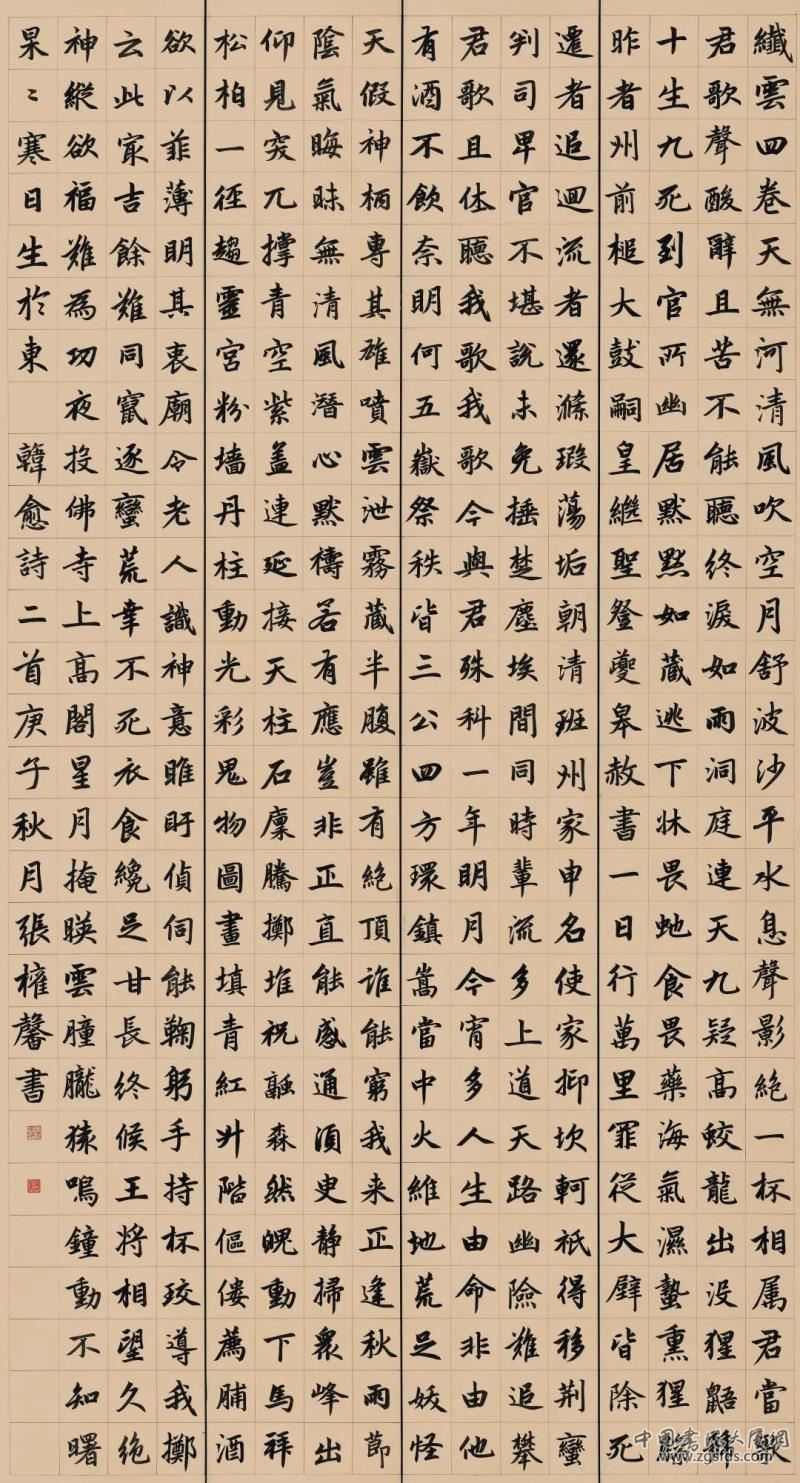 纖雲四卷天無河清風吹空月舒波沙平水息聲影絕一杯相属君當歌
君歌聲酸辭且苦不能聽終淚如雨洞庭連天九疑高蛟龍出没猩鼯號
十生九死到官所幽居默默如藏逃下牀畏虵食畏藥海氣濕蟄熏腥臊
昨者州前槌大鼓嗣皇繼聖登夔皋赦書一日行萬里罪從大辟皆除死
遷者追迴流者還滌瑕蕩垢朝清班州家申名使家抑坎軻祇得移荆蠻
判司卑官不堪説未免捶楚塵埃間同時輩流多上道天路幽險難追攀
君歌且休聽我歌我歌今與君殊科一年明月今宵多人生由命非由他
有酒不飲奈明何五嶽祭秩皆三公四方環鎮嵩當中火維地荒足妖怪
天假神柄專其雄噴雲泄霧藏半腹雖有絕頂誰能窮我来正逢秋雨節
陰氣晦昧無清風潛心默禱若有應豈非正直能感通須臾静掃眾峰出
仰見突兀撐青空紫蓋連延接天柱石廩騰擲堆祝融森然魄動下馬拜
松柏一徑趨靈宮粉墻丹柱動光彩鬼物圖畫填青紅升階傴僂薦脯酒
欲以菲薄明其衷廟令老人識神意睢盱偵伺能鞠躬手持杯珓導我擲
云此最吉餘難同竄逐蠻荒幸不死衣食纔足甘長終候王將相望久絕
神縱欲福難為功夜投佛寺上高閣星月掩暎雲朣朧猿鳴鐘動不知曙
杲〻寒日生於東 韓愈詩二首庚子秋月張權馨書
www.zgsfds.com